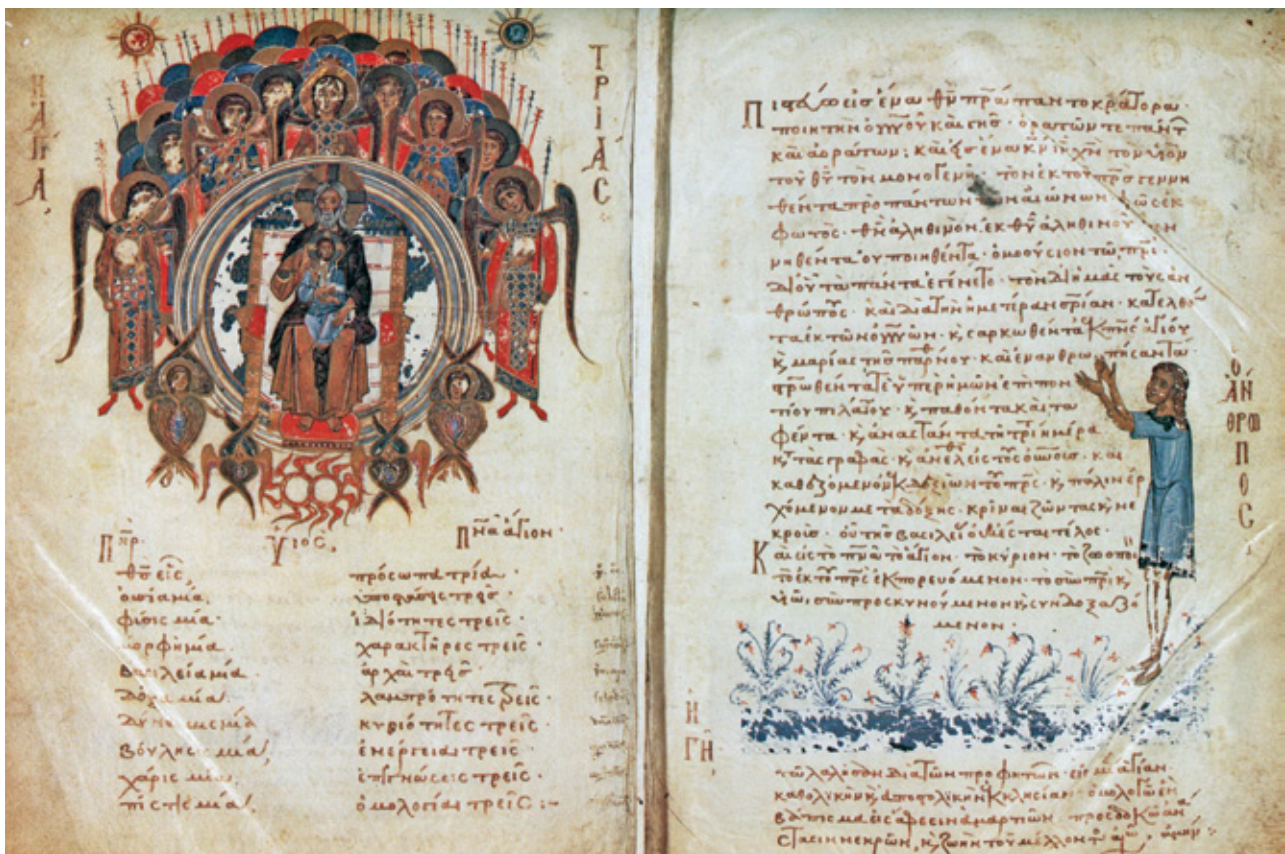 Η ΑΓΙΑ
ΤΡΙΑC
Πηρ· Υἱος, Πνα ἅγιον·
θς εἷς πρόσωπα τρία·
οὐσία μία, ὑποστάσεις τρεῖς·
φύσις μία· ἰδιότητες τρεῖς·
μορφὴ μία· χαρακτῆρες τρεῖς·
βασιλεία μία·
δόξα μία· λαμπρότητες τρεῖς·
κυριότητες τρεῖς·
βούλησις μία, ἐνέργειαι τρεῖς·
χάρις μία, ἐπιγνώσεις τρεῖς·
πίστις μία, ὁμολογίαι τρεῖς:-
εἰς ἕνα θν πρα παντοκράτορα·
ποιητὴν ουνου καὶ γῆς· ὁρατῶν τε πάντ
καὶ ἀορατων· καὶ εἰς ἕνα κν ιν χν τὸν υἱὸν
τοῦ θυ τὸν μονογενῆ· τὸν ἐκ του πρς γεννη
θέντα προ πάντων τῶν αἰώνων· φῶς ἐκ
φωτός· θν ἀληθινὸν ἐκ θυ ἀληθινοῦ γεν
νηθέντα οὐ ποιηθέντα· ὁμοούσιον τῶ πρι·
δι οὗ τὰ πάντα ἐγένετο· τὸν δι ἡμᾶς τοὺς ἀν
θρώπους· καὶ διὰ τὴν ἡμετέραν σριαν· κατελθόν
τα ἐκ τῶν ουνων· κ σαρκωθέντα ἐκ πνς ἁγίου
κ μαρίας τῆς παρνου· καὶ ἐνανθρωπήσαντα·
στρωθέντα τε ὑπερ ἡμῶν ἐπι πον
τίου πιλάτου· κ παθόντα καὶ τα
φέντα· κ ἀναστάντα τῆ τρίτη ἡμέρα
κτ τὰς γραφάς· κ ἀνελθ εἰς τοὺς ουνοις· καὶ
καθεζόμενον ἐκ δεξιῶν τοῦ πρς· κ πάλιν ἐρ
χόμενον μετα δόξης· κρίναι ζῶντας κ νε
κροῖς· οὗ τῆς βασιλείας οὐκ ἔσται τέλος·
Καὶ εἰς τὸ πνα τὸ ἅγιον· τὸ κύριον· τὸ ζωοποι
τὸ ἐκ τοῦ πρς ἐκπορευόμενον· τὸ σὺν πρι κ
υιω συμπροσκυνούμενον κ συνδοξαζό
μενον·
Ὁ ΑΝΘΡΩΠΟC,
Η ΓΗ,
τὸ λαλῆσον διὰ τῶν προφητῶν· εἰς μίαν ἁγίαν
καθολικὴν κ ἀποστολικὴν ἐκκλησίαν· ὁμολογῶ ἓν
βάπτισμα εἰς ἄφεσιν ἁμαρτιῶν· προσδοκῶ ἀνά
στασιν νεκρῶν, κ ζωὴν τοῦ μέλλοντος αἰῶ, ἀμήν: